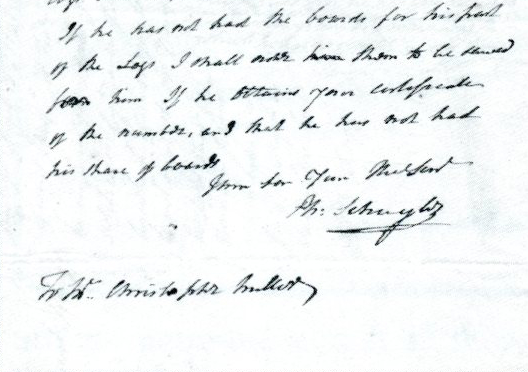 If he has not had the boards for his part
of the Logs I shall order them to be sawed
him If he obtains your certificate
of the number, and that he has not had
his share of boards
I am Sir Your
Ph: Schuyler
To Mr. Christopher